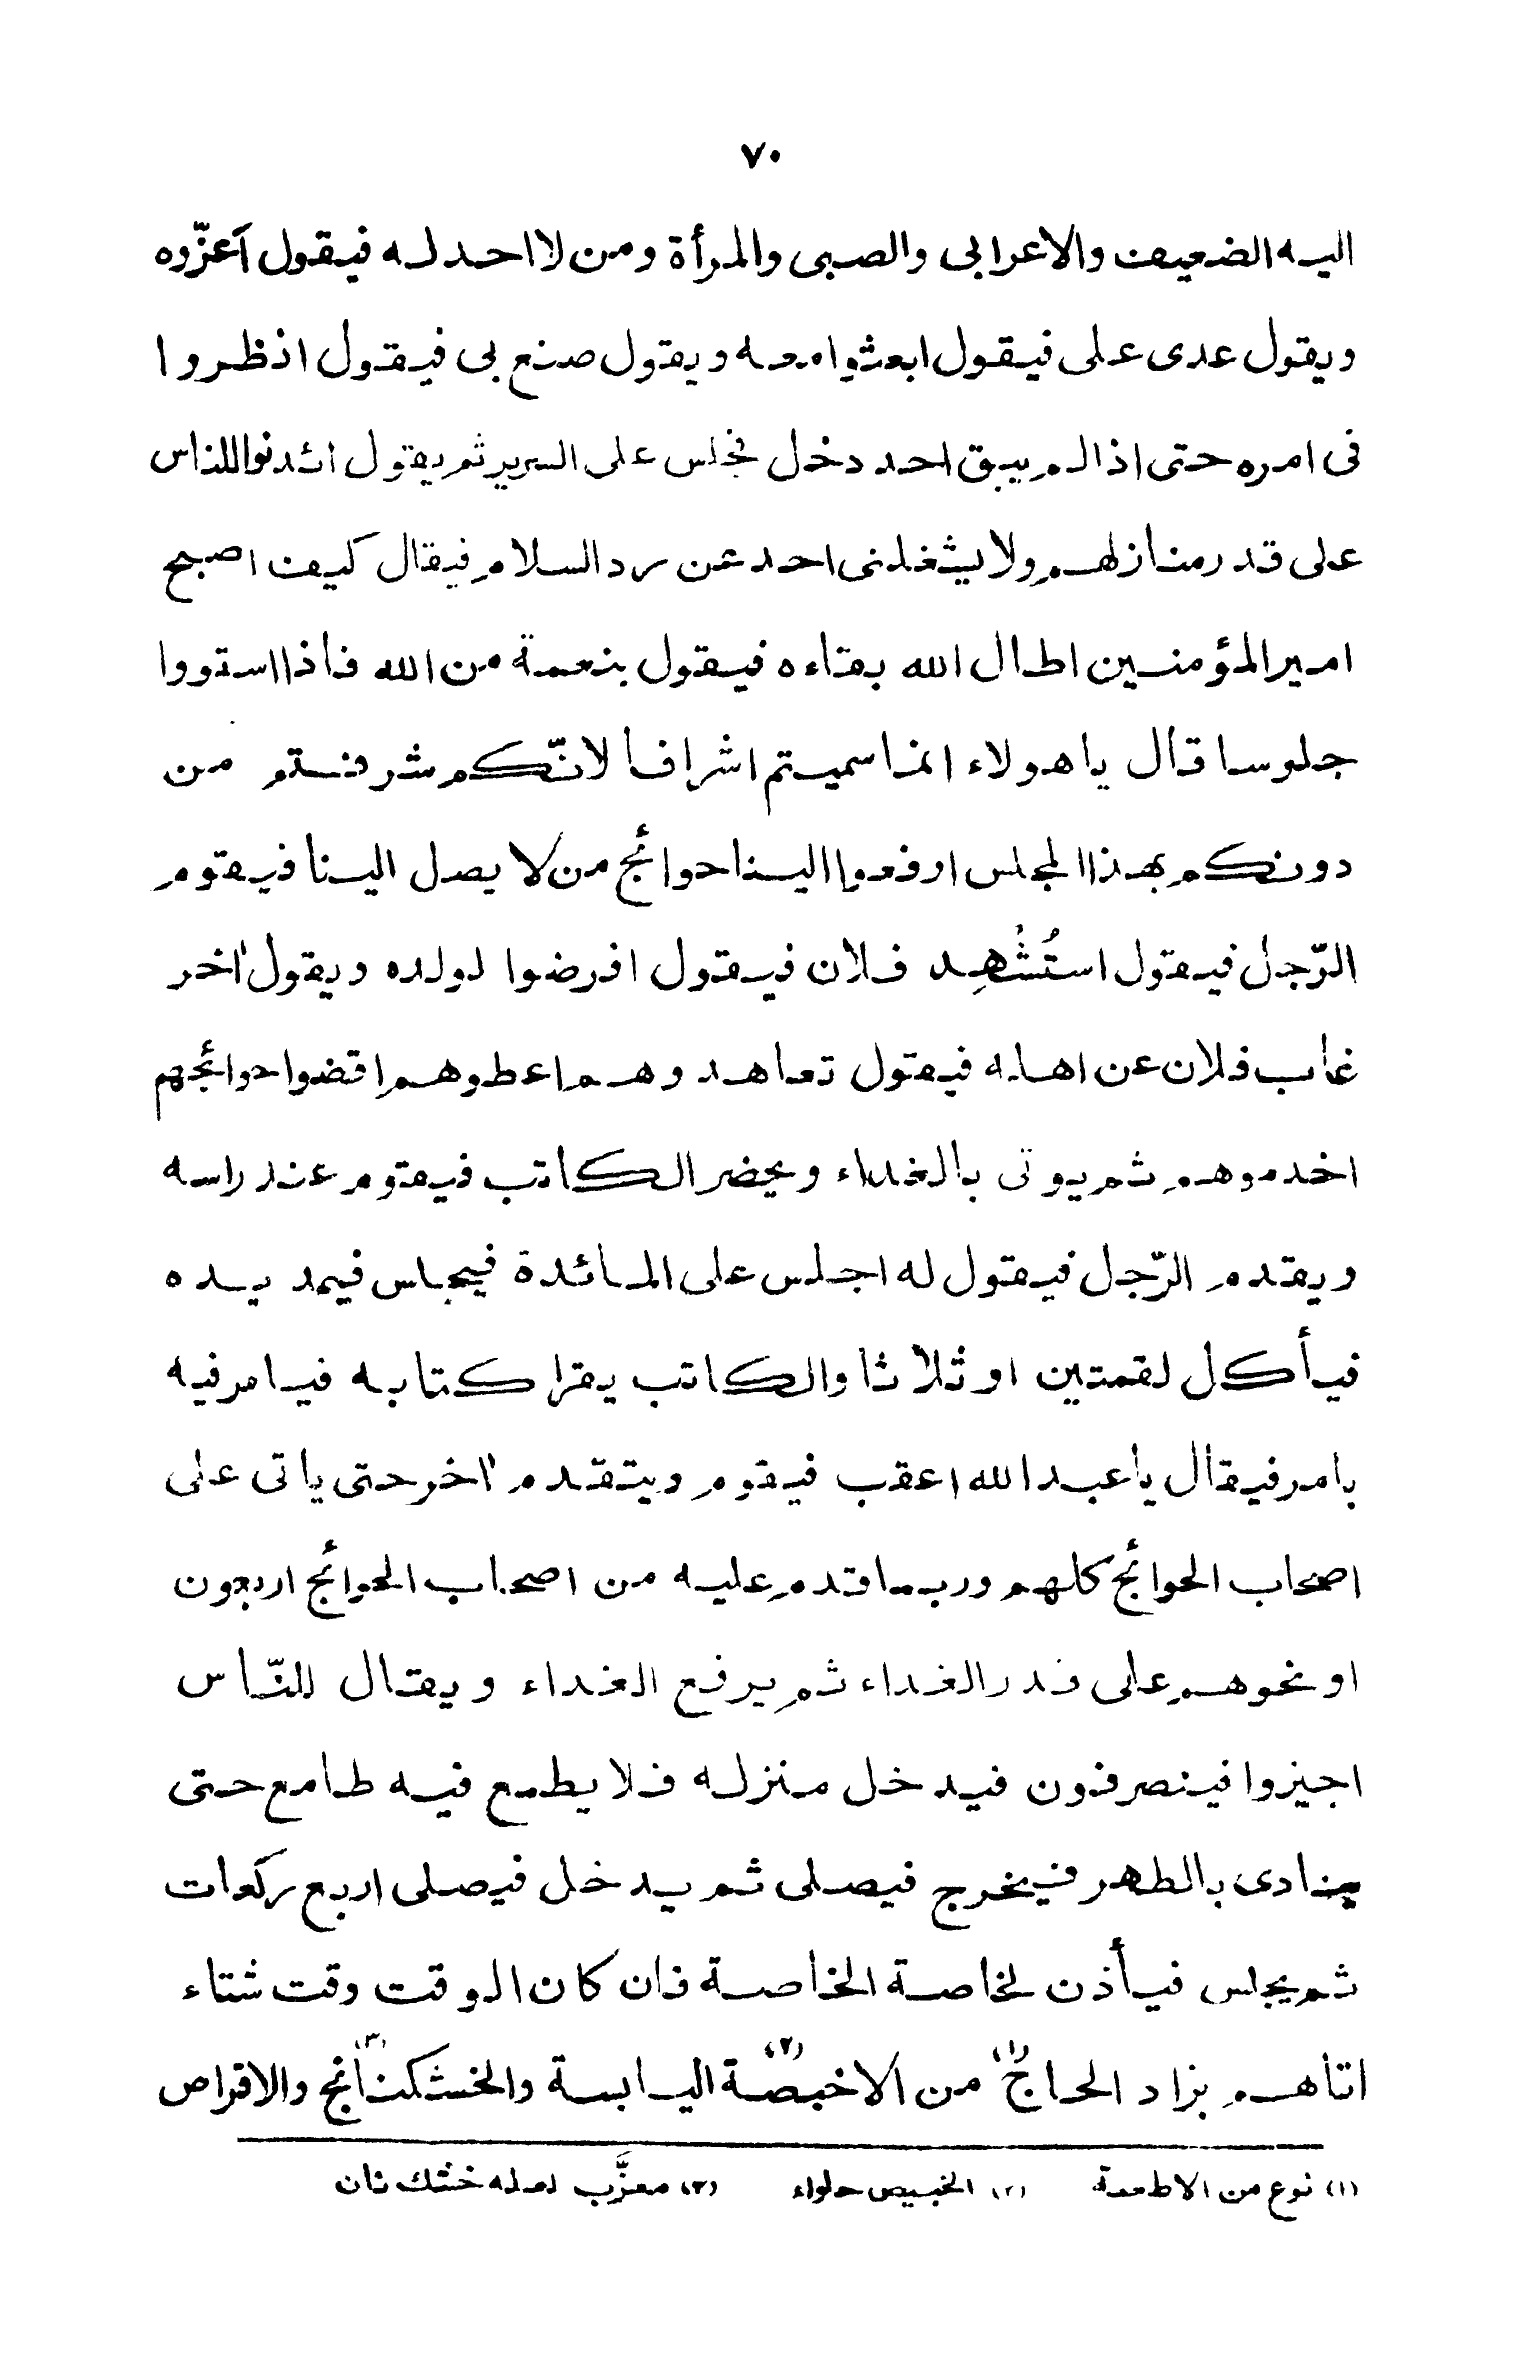 ٧٠
اليه الضعيف والاعرابى والصبى والمرأة ومن لا احد له فيقول أعزّوه
ويقول عدى على فيقول ابعثوا معه ويقول صنع بى فيقول انظروا
فى امره حتى اذا لم يبق احد دخل فجلس على السرير ثم يقول ائذنوا للناس
على قدر منازلهم ولا يشغلنى احد عن رد السلام فيقال كيف اصبح
امير المؤمنين اطال الله بقاءه فيقول بنعمة من الله فاذا استووا
جلوسا قال يا هولاء انما سميتم اشرافا لانّكم شرفتم من
دونكم بهذا المجلس ارفعوا الينا حوائج من لا يصل الينا فيقوم
الرّجل فيقول استُشْهِد فلان فيقول افرضوا لولده ويقول اٰخر
غاب فلان عن اهله فيقول تعاهد وهم اعطوهم اقضوا حوائجهم
اخدموهم ثم يوتى بالغداء ويحضر الكاتب فيقوم عند راسه
ويقدم الرّجل فيقول له اجلس على المائدة فيجلس فيمد يده
فيأكل لقمتين او ثلاثا والكاتب يقرا كتابه فيامر فيه
بامر فيقال يا عبد الله اعقب فيقوم ويتقدم اٰخر حتى ياتى على
اصحاب الحوائج كلهم وربما قدم عليه من اصحاب الحوائج اربعون
او نحوهم على قدر الغداء ثم يرفع الغداء ويقال للنّاس
اجيزوا فينصرفون فيدخل منزله فلا يطمع فيه طامع حتى
ينادى بالظهر فيخرج فيصلى ثم يدخل فيصلى اربع ركعات
ثم يجلس فيأذن لخاصة الخاصة فان كان الوقت وقت شتاء
اتاهم بزاد الحاج (١) من الاخبصة (٢) اليابسة والخشكنانج (٣) والاقراص
(١) نوع من الاطعمة (٢) الخبيص حلواء (٣) معرَّب لعله خشك نان